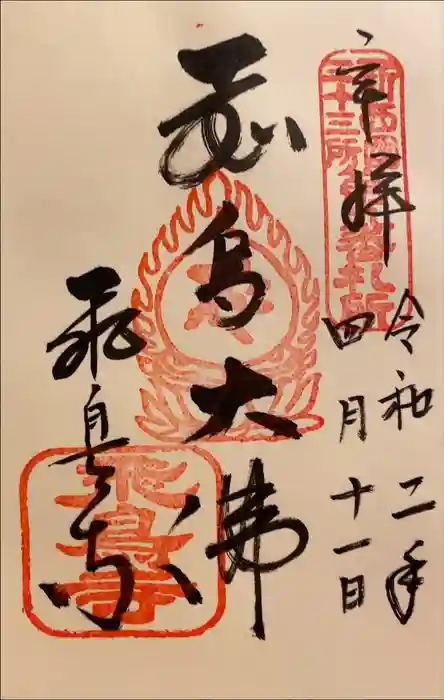 奉拝
令和二年
四月十一日
飛鳥大佛
飛鳥寺
新西国
三十三所
飛鳥寺